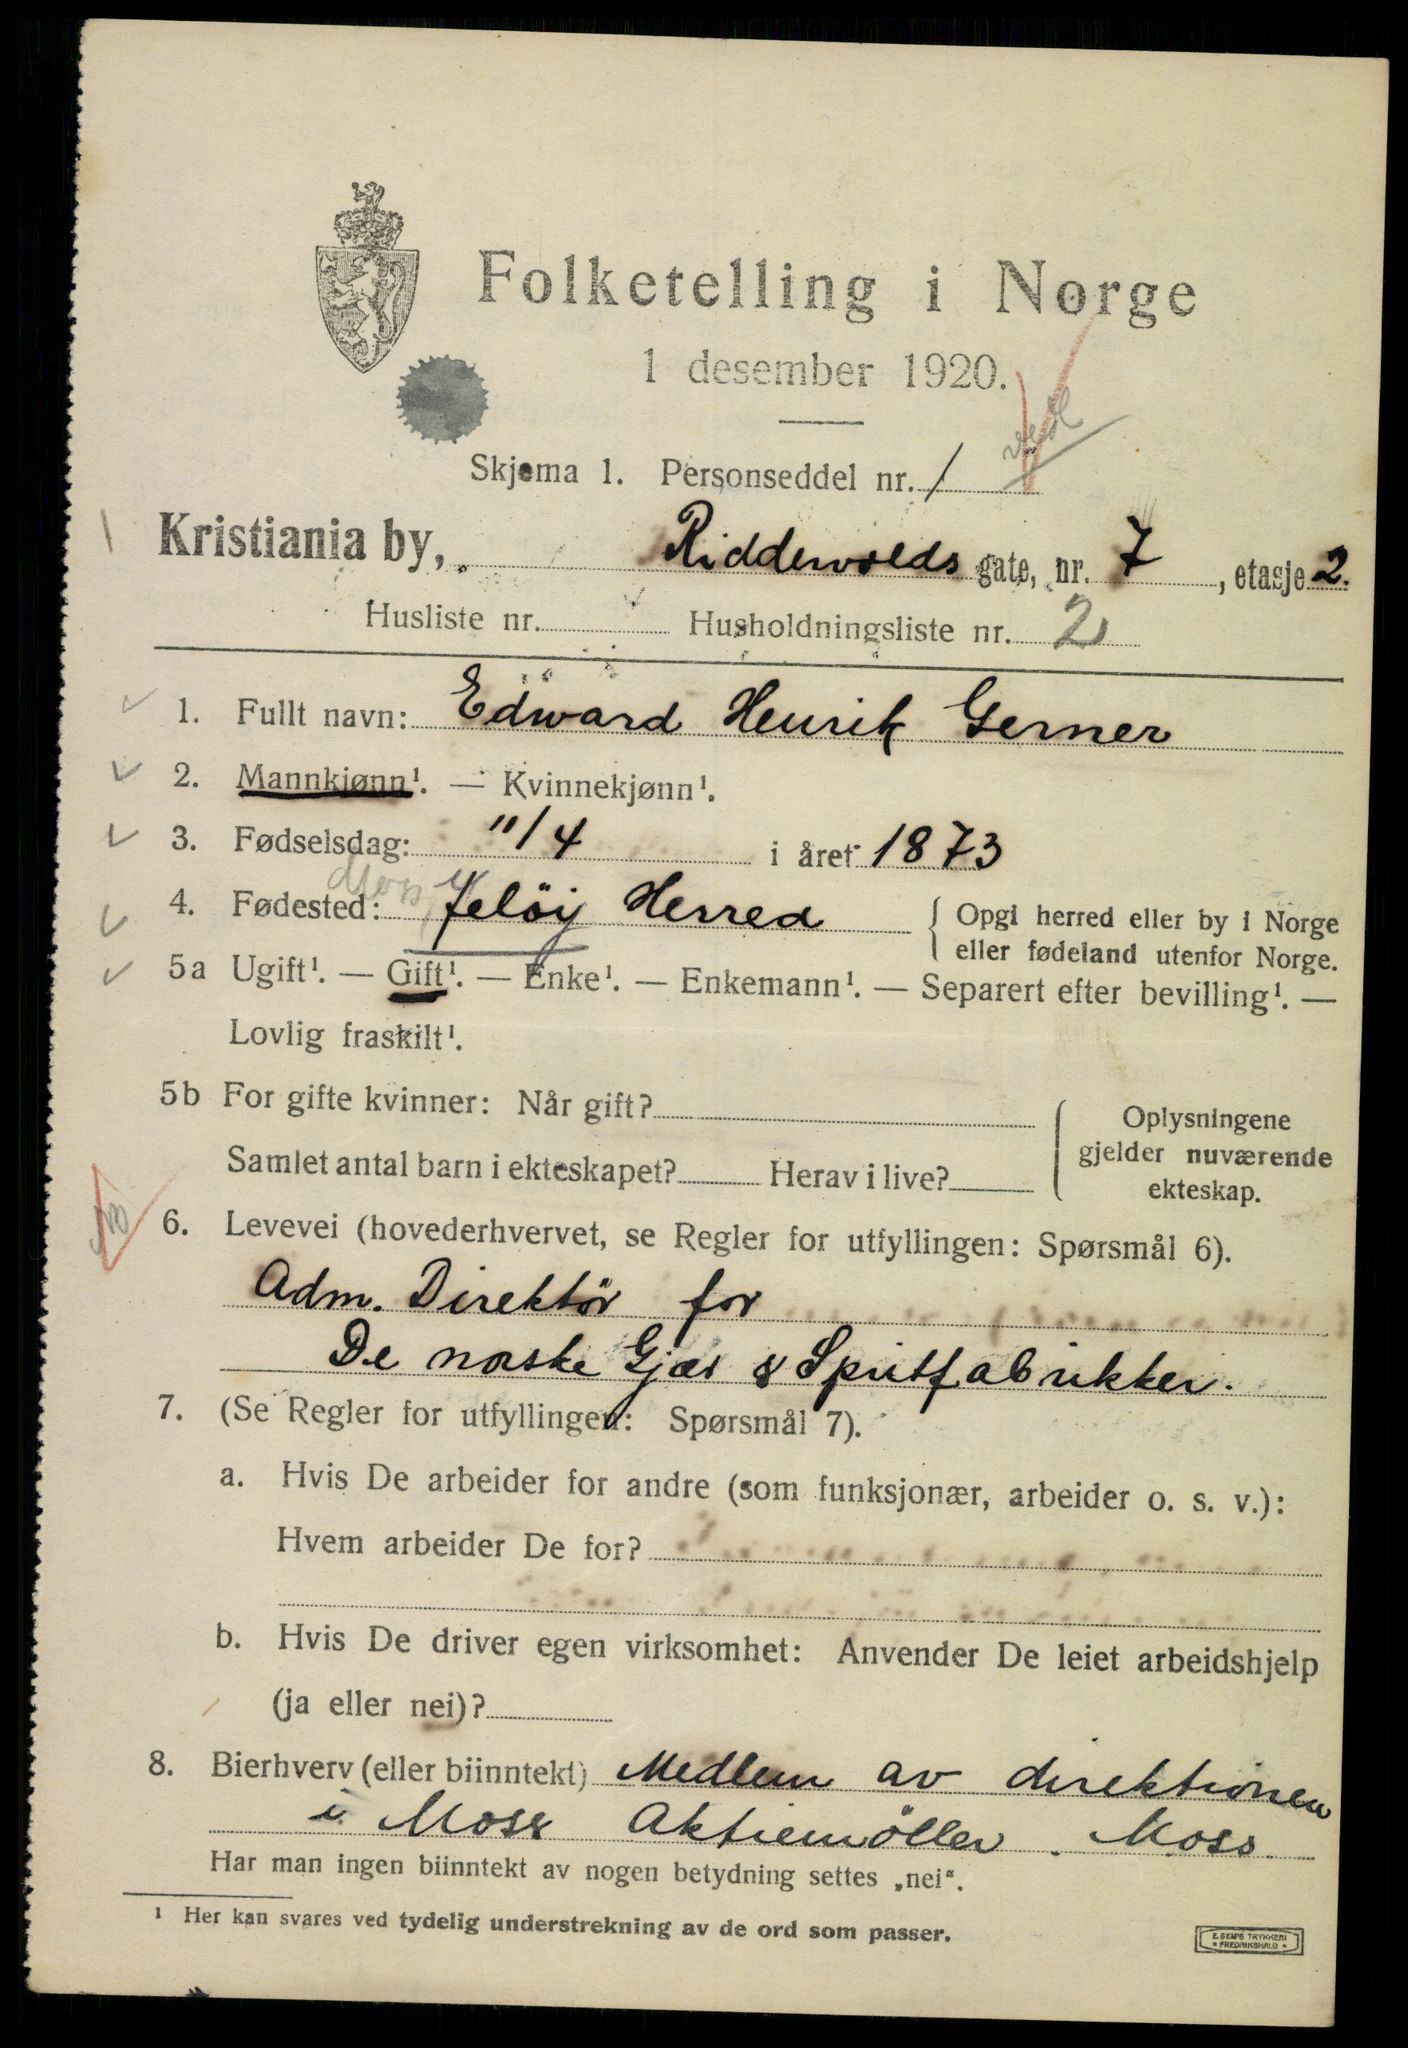 Folketelling i Norge
1 desember 1920.
Skjema 1. Personseddel nr. 1
Kristiania by, Riddervolds gate, nr. 7, etasje 2.
Husliste nr. Husholdningsliste nr. 2
1. Fullt navn: Edward Henrik Gerner
2. Mannkjønn¹. — Kvinnekjønn¹.
3. Fødselsdag: 11/4 i året 1873
Moss
4. Fødested: Jeløy Herred { Opgi herred eller by i Norge
eller fødeland utenfor Norge.
5a Ugift¹. — Gift¹. — Enke¹. — Enkemann¹. — Separert efter bevilling¹. —
Lovlig fraskilt¹.
5b For gifte kvinner: Når gift?
Samlet antal barn i ekteskapet? Herav i live?
Oplysningene
gjelder nuværende
ekteskap.
6. Levevei (hovederhvervet, se Regler for utfyllingen: Spørsmål 6).
Adm. Direktör for
De norske Gjær & Spritfabrikker.
7. (Se Regler for utfyllingen: Spørsmål 7).
a. Hvis De arbeider for andre (som funksjonær, arbeider o. s. v.):
Hvem arbeider De for?
b. Hvis De driver egen virksomhet: Anvender De leiet arbeidshjelp
(ja eller nei)?
8. Bierhverv (eller biinntekt) Medlem av direktionen
i Moss Aktiemöller. Moss
Har man ingen biinntekt av nogen betydning settes „nei“.
¹ Her kan svares ved tydelig understrekning av de ord som passer.
E. SEM'S TRYKKERI
• FREDRIKSHALD •